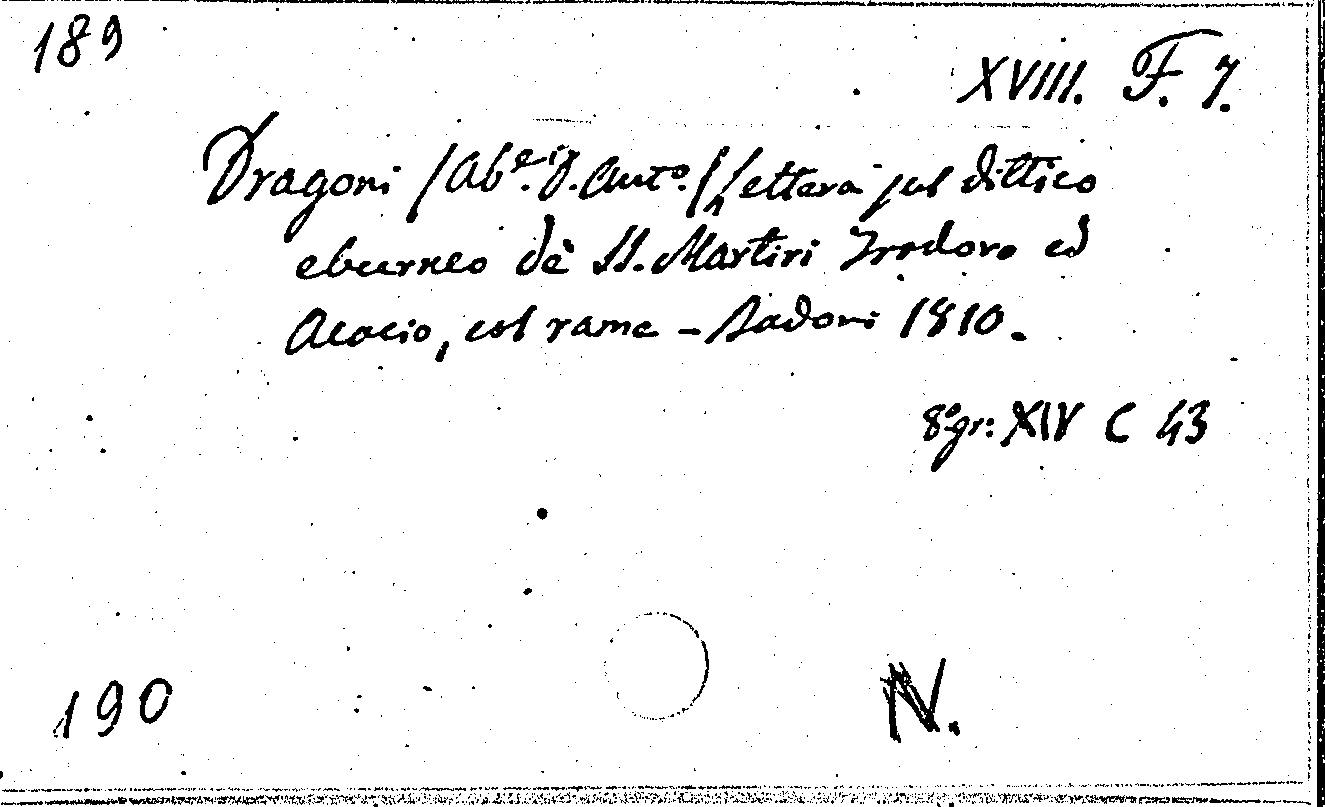 189
XVIII. F. 7.
Dragoni /Abe. D. Anto./ Lettera sul dittico
eburneo de' SS. Martiri Teodoro ed
Acacio, col rame - 1810.
8° gr: XIV C 43
190
N.